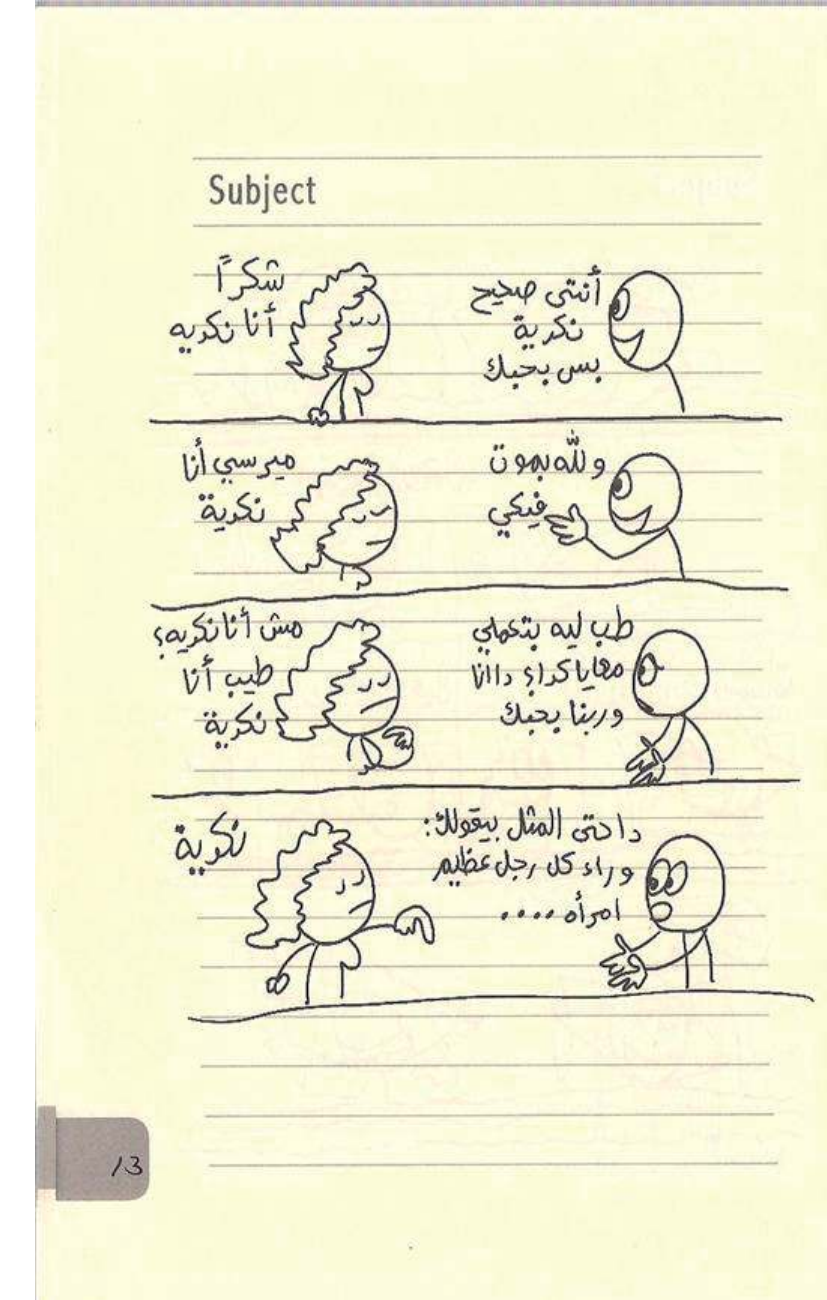 Subject
أنتى صحيح
نكدية
بس بحبك
شكراً
أنا نكديه
ولله بموت
فيكي
ميرسي أنا
نكدية
طب ليه بتعملي
معايا كدا؟ داانا
وربنا بحبك
مش أنا نكديه؟
طيب أنا
نكدية
دا حتى المثل بيقولك:
وراء كل رجل عظيم
امرأه ....
نكدية
13